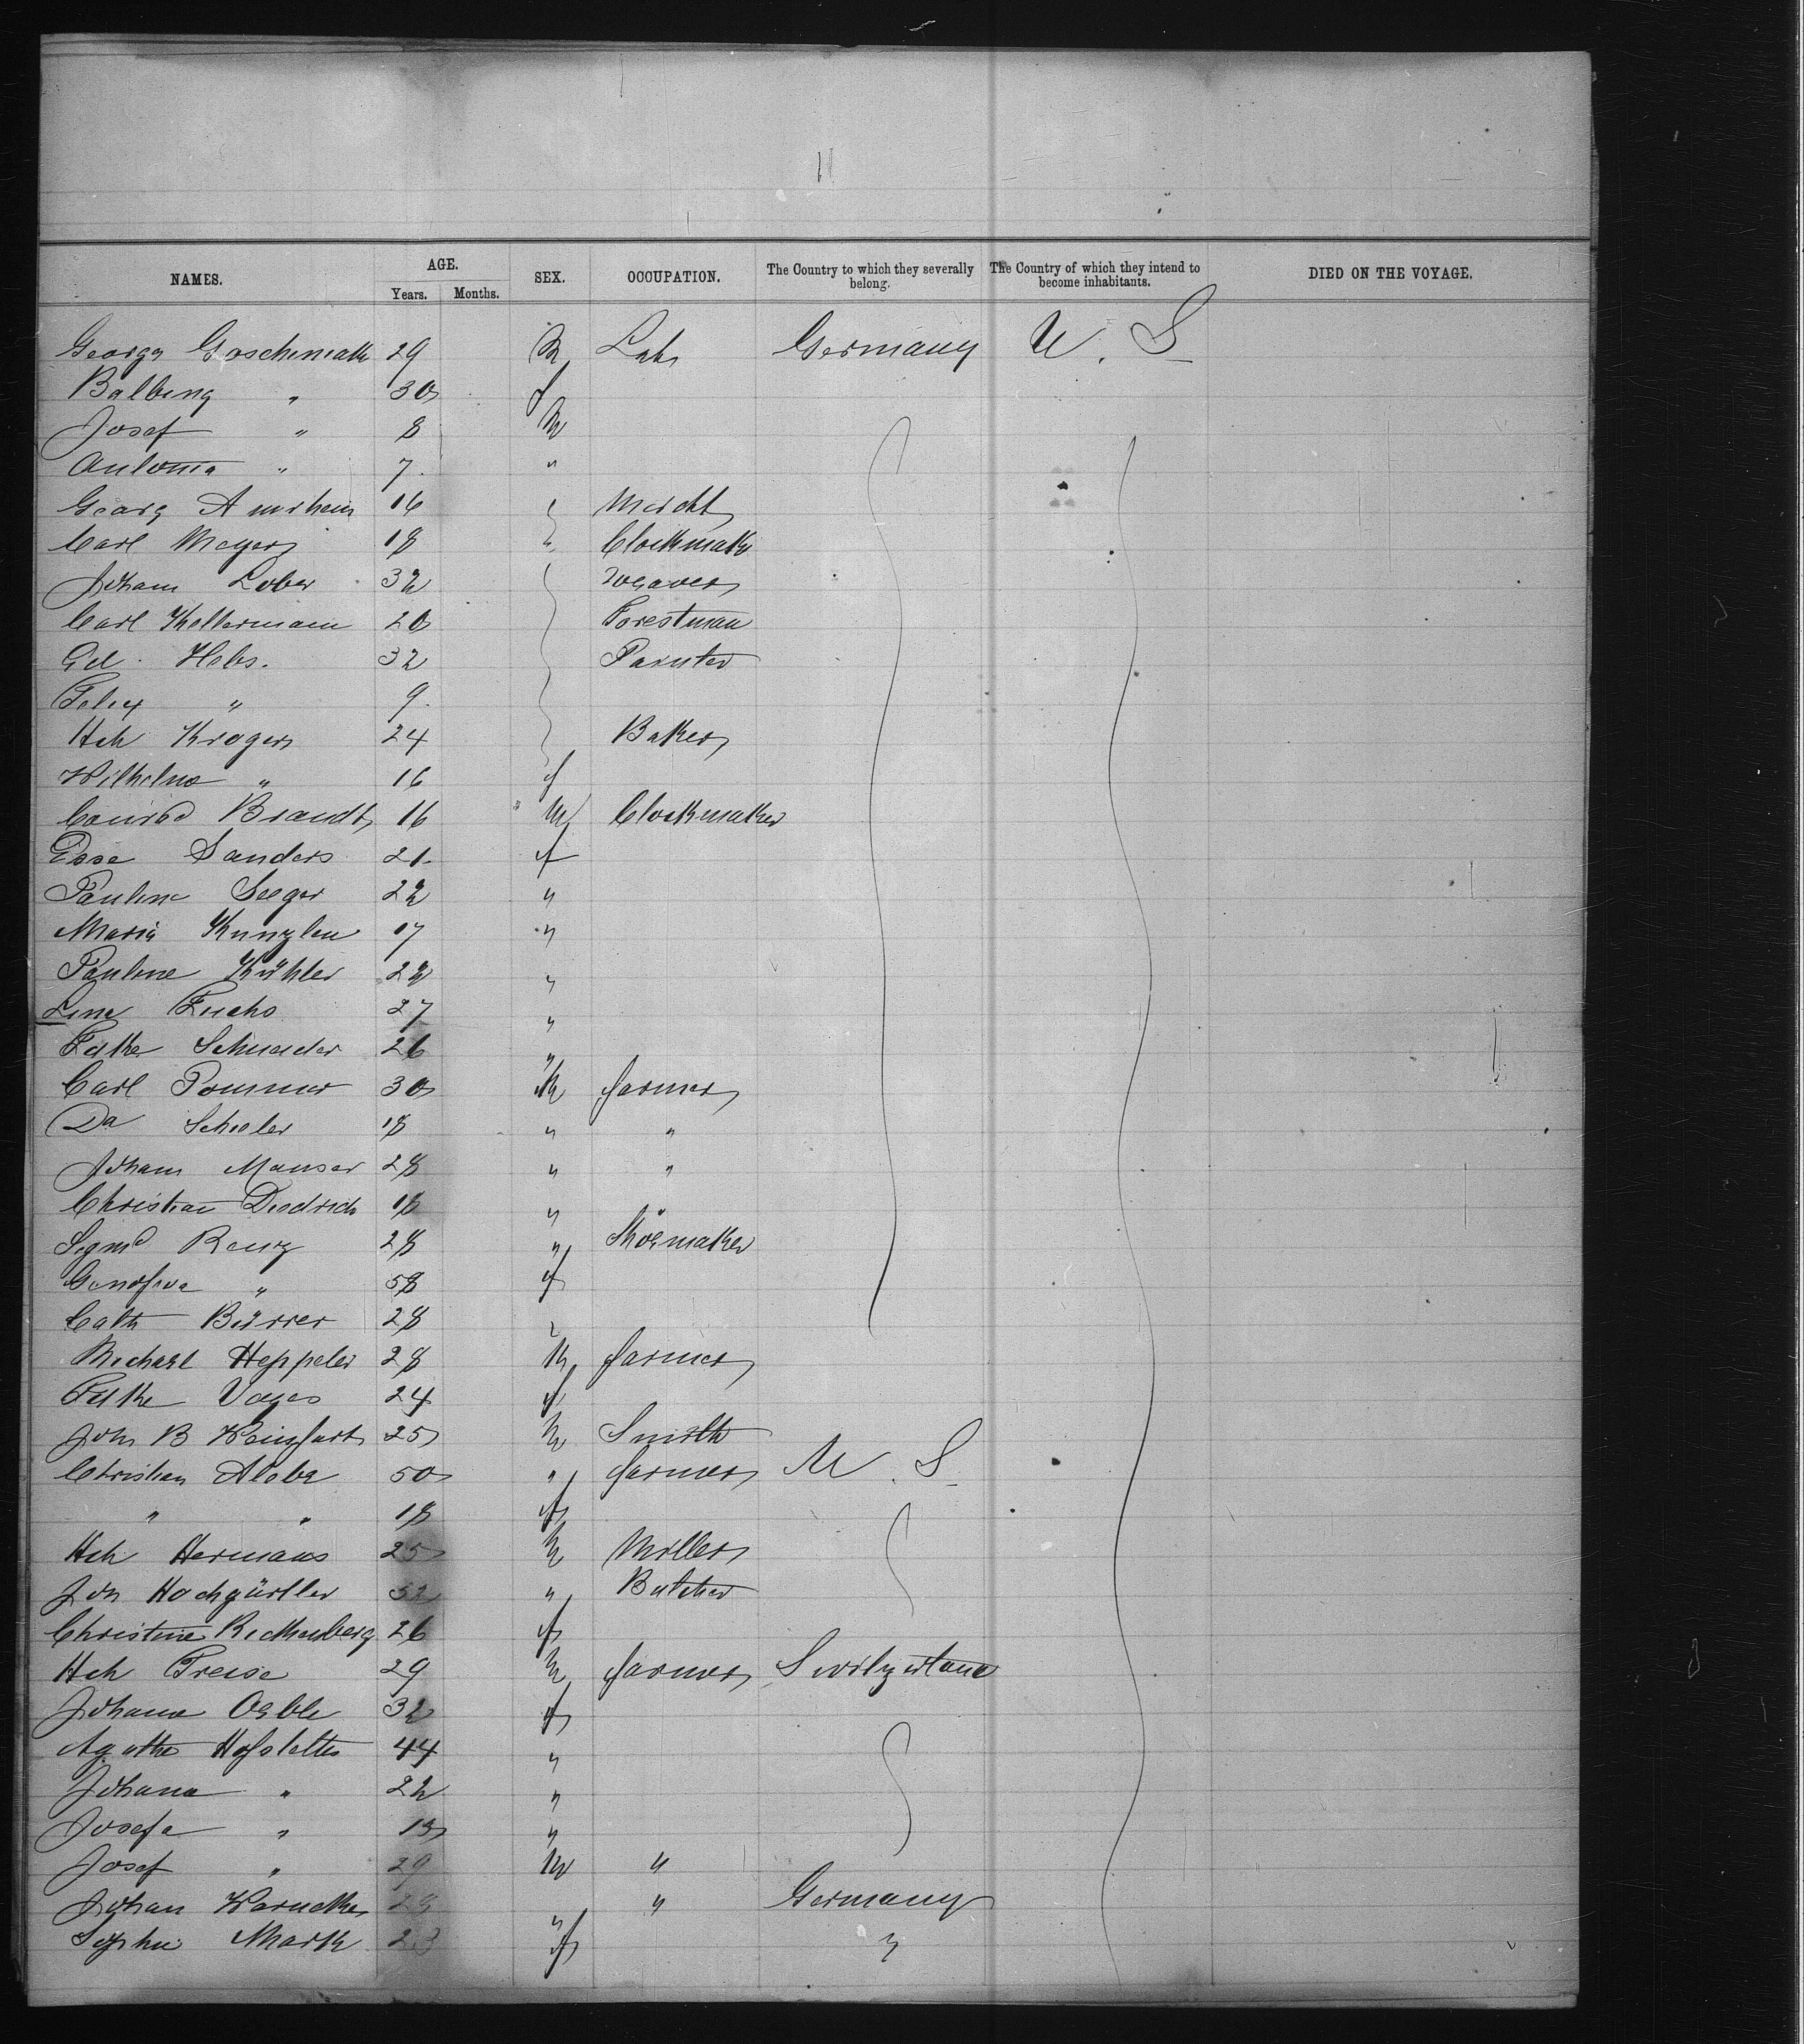 NAMES. AGE. SEX. OCCUPATION. The Country to which they severally belong. The Country of which they intend to become inhabitants. DIED ON THE VOYAGE.
Years. Months.
Georg 29 M Lab Germany U. S
Balbina " 30 f
Josef " 8 M
Antonia " 7 "
Georg Amrhein 16 " Marcht
Carl Meyer 18 " Clockmak
Johann Lober 32 Weaver
Carl Kellermann 20 Forestman
Ed. Hebs. 32 Painter
Felix " 9
Hch Kroger 24 Baker
Wilhelma " 16 f
Conrad Brandt 16 M Clockmaker
Esse Sanders 21 f
Pauline Seeger 22 "
Maria Kunzlen 17 "
Pauline Kühler 22 "
Lina Fuchs 27 "
Schneider 26 "
Carl Pommer 30 M farmer
Da Schieler 18 " "
Johann Manser 28 " "
Christian Diedrich 18 " "
Sigmd Renz 28 " Shoemaker
Genofeva " 58 f
Cath Bürrer 28 "
Michael Heppeler 28 M farmer
Voges 24 f
Joh B Weingart 25 M Smith
Christian Aleba 50 " farmer U. S
" " 18 f
Hch Hermans 25 M Miller
Jos Hochgürtler 52 " Butcher
Christine Richenberg 26 f
Hch Freise 29 M farmer Switzerland
Johana Oeble 32 f
Agatha Hofstetter 44 "
Johana " 22 "
Josefa " 13 "
Josef " 29 M "
Johan 28 " " Germany
Sophie Mark 23 f "